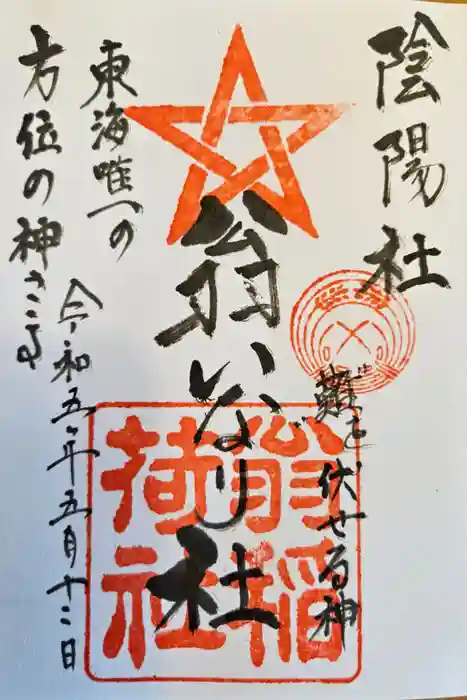 陰陽社
難を伏せる神
翁いなり社
翁稲
荷社
東海唯一の
方位の神さま
令和五年五月十二日